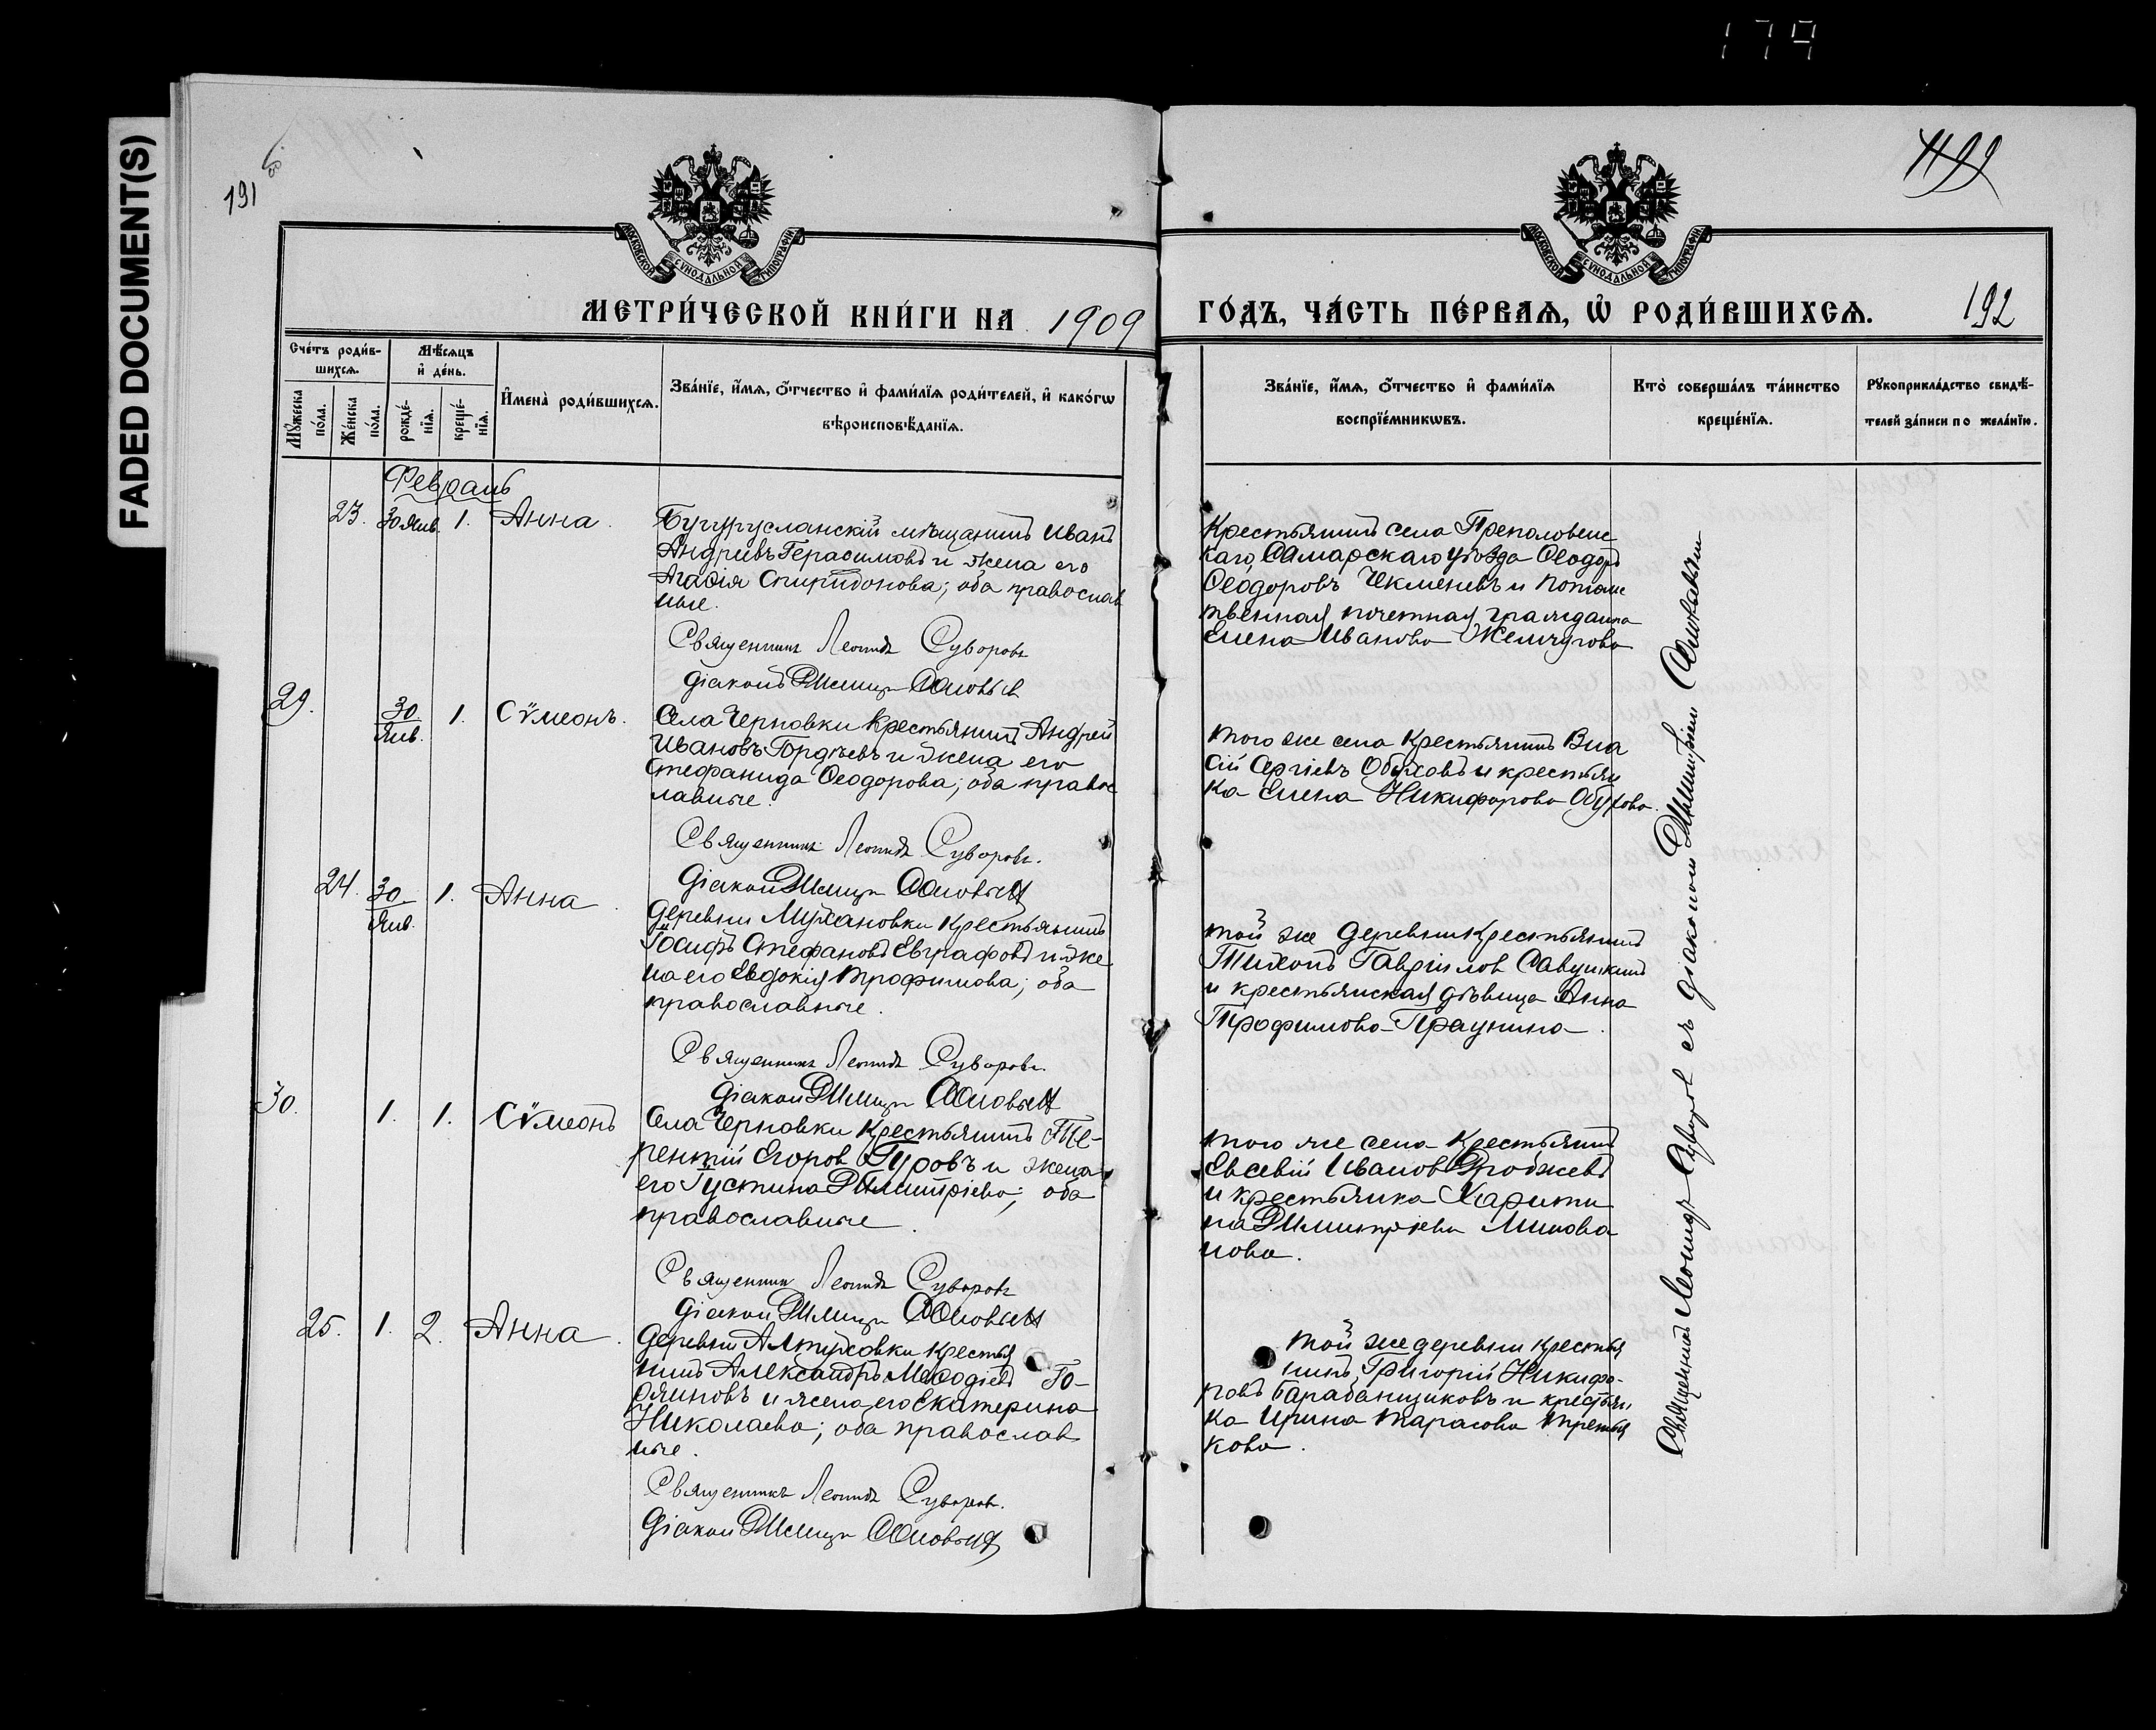 179
FADED DOCUMENT(S)
191
1199
МОСКОВСКОЙ СУНОДАЛЬНОЙ ТИПОГРАФІИ
МОСКОВСКОЙ СУНОДАЛЬНОЙ ТИПОГРАФІИ
МЕТРИ́ЧЕСКОЙ КНИ́ГИ НА 1909
ГО́ДЪ, ЧА́СТЬ ПЕ́РВАѦ, Ѡ҆ РОДИ́ВШИХСѦ. 192
Сче́тъ роди́в-
шихсѧ.
Мꙋ́жеска
по́ла.
Же́нска
по́ла.
Мѣ́сѧцъ
и҆ де́нь.
рожде́-
нїѧ.
креще́-
нїѧ.
И҆мена̀ роди́вшихсѧ.
Зва́нїе, и҆́мѧ, ѻ҆́тчество и҆ фами́лїѧ роди́телей, и҆ како́гѡ
вѣроисповѣ́данїѧ.
Зва́нїе, и҆́мѧ, ѻ҆́тчество и҆ фами́лїѧ
воспрїе́мникѡвъ.
Кто̀ соверша́лъ та́инство
креще́нїѧ.
Рꙋкоприкла́дство свидѣ́-
телей за́писи по жела́нїю.
Февраль
23. 30 Янв. 1. Анна.
Бугурусланскій мѣщанинъ Иванъ
Андреевъ Герасимовъ и жена его
Агаѳія Спиридонова; оба православ
ные.
Священникъ Леонидъ Суворовъ
Діаконъ Димитрій
Крестьянинъ села Преполовенс
каго, Самарскаго уѣзда Ѳеодоръ
Ѳеодоровъ Чекменевъ и потомс
твенная почетная гражданка
Елена Иванова Жемчугова
29. 30 Янв. 1. Сѵмеонъ.
Села Черновки крестьянинъ Андрей
Ивановъ Гордѣевъ и жена его
Стефанида Ѳеодорова; оба правос
лавные.
Священникъ Леонидъ Суворовъ.
Діаконъ Димитрій
того же села крестьянинъ Вла
сій Сергіевъ Обуховъ и крестьян
ка Елена Никифорова Обухова.
24. 30 Янв. 1. Анна.
Деревни Мухановки крестьянинъ
Іосифъ Стефановъ Евграфовъ и же
на его Евдокія Трофимова; оба
православные.
Священникъ Леонидъ Суворовъ.
Діаконъ Димитрій
той же деревни крестьянинъ
Тихонъ Гавріиловъ Савушкинъ
и крестьянская дѣвица Анна
Трофимова
30. 1. 1. Сѵмеонъ
Села Черновки крестьянинъ Те-
рентій Егоровъ Гуровъ и жена
его Іустина Димитріева; оба
православные.
Священникъ Леонидъ Суворовъ
Діаконъ Димитрій
того же села крестьянинъ
Евсевій Ивановъ
и крестьянка Харити
на Димитріева
нова.
25. 1. 2. Анна.
Деревни Алтуховки крестья
нинъ Александръ Меѳодіевъ Го-
и жена его Екатерина
Николаева; оба православ
ные.
Священникъ Леонидъ Суворовъ.
Діаконъ Димитрій
той же деревни крестья
нинъ Григорій Никифо-
ровъ Барабанщиковъ и крестьян
ка Ирина Тарасова Третья
кова.
Священникъ Леонидъ Суворовъ съ діакономъ Димитріемъ